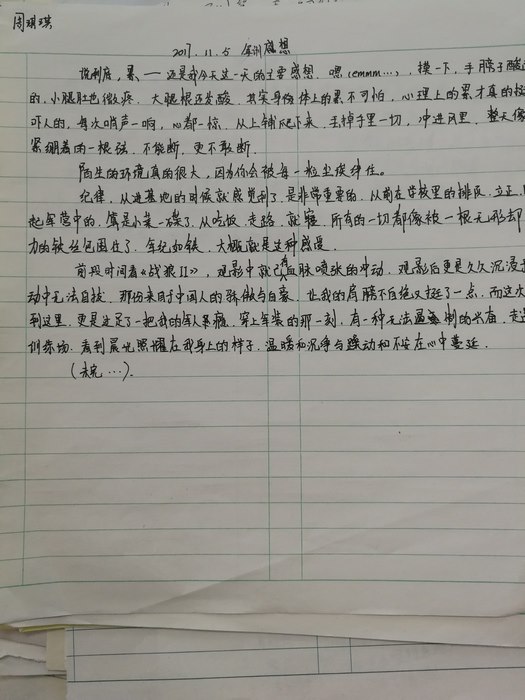 周琪琪
2017.11.5 军训感想
说到底,累——还是我今天这一天的主要感想.嗯(emmm…),摸一下,手膀子酸
的,小腿肚也微疼.大腿根还发酸.其实身体上的累不可怕,心理上的累才真的
吓人的,每次哨声一响,心都一惊.从上铺爬下来,丢掉手里一切,冲进风里.整天像
紧绷着的一根弦.不能断,更不敢断.
陌生的环境真的很大,因为你会被每一粒尘埃绊住.
纪律,从进基地的时候就感觉到了.是非常重要的.从前在学校里的排队.立正.
起军营中的,算是小菜一碟了.从吃饭.走路.就寝.所有的一切都像被一根无形却
力的铁丝包围住了.军纪如铁.大概就是这种感觉.
前段时间看《战狼II》,观影中就已有血脉喷张的冲动.观影后更是久久沉浸
动中无法自拔.那份来自于中国人的骄傲与自豪.让我的肩膀不自绝又挺了一点.而这次
到这里.更是过足了一把我的军人慕瘾.穿上军装的那一刻,有一种无法遏制的光
训练场.看到晨光照耀在我身上的样子.温暖和沉净与躁动和不安在心中蔓延.
(未完…).